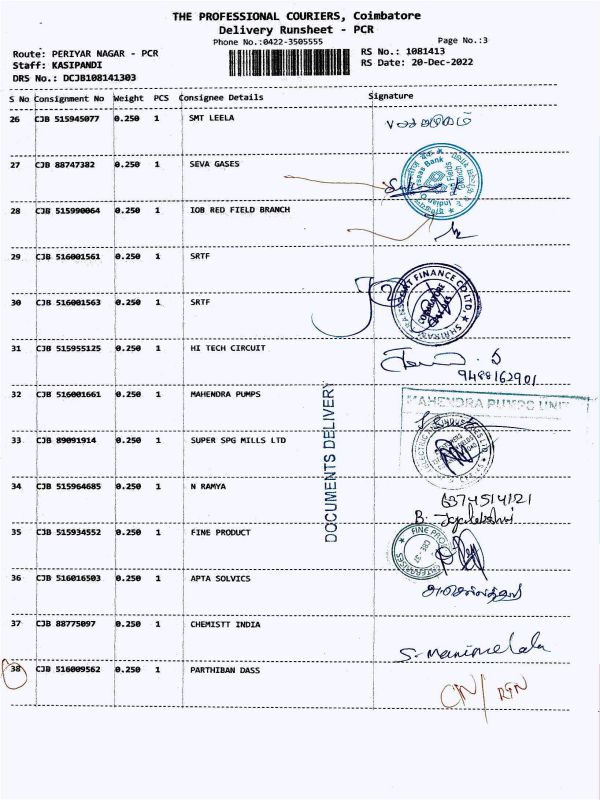 THE PROFESSIONAL COURIERS, Coimbatore
Delivery Runsheet - PCR
Phone No.:0422-3505555
Page No.:3
Route: PERIYAR NAGAR - PCR
RS No.: 1081413
Staff: KASIPANDI
RS Date: 20-Dec-2022
DRS No.: DCJB108141303
S No Consignment No Weight PCS Consignee Details Signature
26 CJB 515945077 0.250 1 SMT LEELA
27 CJB 88747382 0.250 1 SEVA GASES
28 CJB 515990064 0.250 1 IOB RED FIELD BRANCH
29 CJB 516001561 0.250 1 SRTF
30 CJB 516001563 0.250 1 SRTF
31 CJB 515955125 0.250 1 HI TECH CIRCUIT
9488162901
32 CJB 516001661 0.250 1 MAHENDRA PUMPS
MAHENDRA PUMPS UNIT
33 CJB 89091914 0.250 1 SUPER SPG MILLS LTD
DOCUMENTS DELIVERY
34 CJB 515964685 0.250 1 N RAMYA
6374514121
35 CJB 515934552 0.250 1 FINE PRODUCT
36 CJB 516016503 0.250 1 APTA SOLVICS
37 CJB 88775097 0.250 1 CHEMISTT INDIA
S. Manimelala
38 CJB 516009562 0.250 1 PARTHIBAN DASS
CN/ RTN